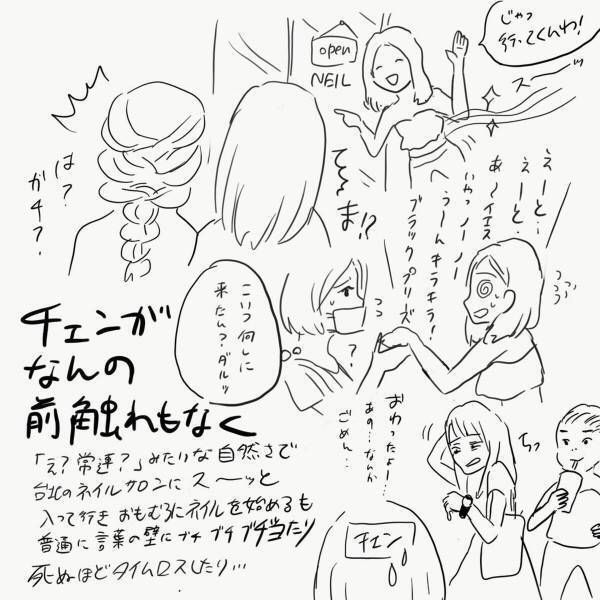 じゃっ
行ってくんわ!
open
NEIL
スーッ
は?
ガチ?
ま!?
えーと…
えーと…
あ〜イエス
いやっノーノー
うーんキラキラ!
ブラックプリーズ
こいつ何しに
来たん?ダルッ
?
おわったよー…
あの…なんか
ごめん…
ちっ
チェン
チェンが
なんの
前触れもなく
「え?常連?」みたいな自然さで
台北のネイルサロンにス〜ッと
入って行きおもむろにネイルを始めるも
普通に言葉の壁にブチブチブチ当たり
死ぬほどタイムロスしたり…